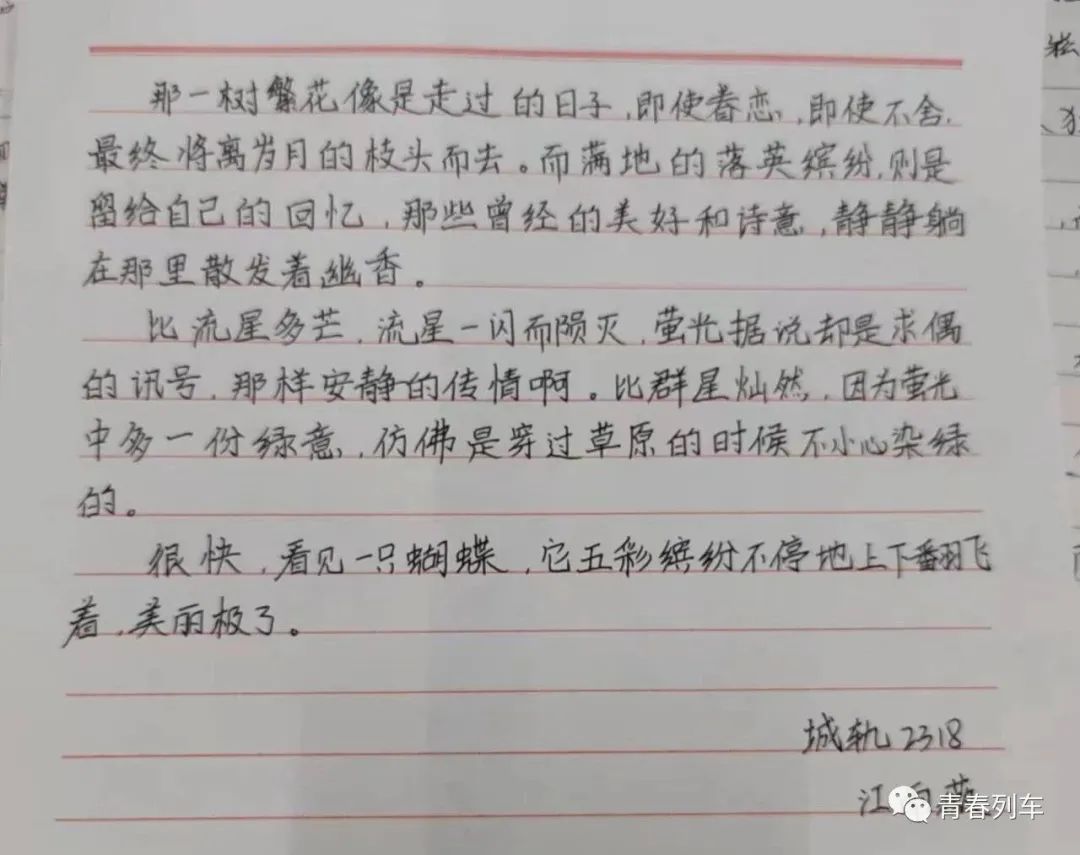 那一树繁花像是走过的日子,即使眷恋,即使不舍,
最终将离岁月的枝头而去。而满地的落英缤纷,则是
留给自己的回忆,那些曾经的美好和诗意,静静躺
在那里散发着幽香。
比流星多芒,流星一闪而陨灭,萤光据说却是求偶
的讯号,那样安静的传情啊。比群星灿然,因为萤光
中多一份绿意,仿佛是穿过草原的时候不小心染绿
的。
很快,看见一只蝴蝶,它五彩缤纷不停地上下翻飞
着,美丽极了。
城轨2318
江
青春列车